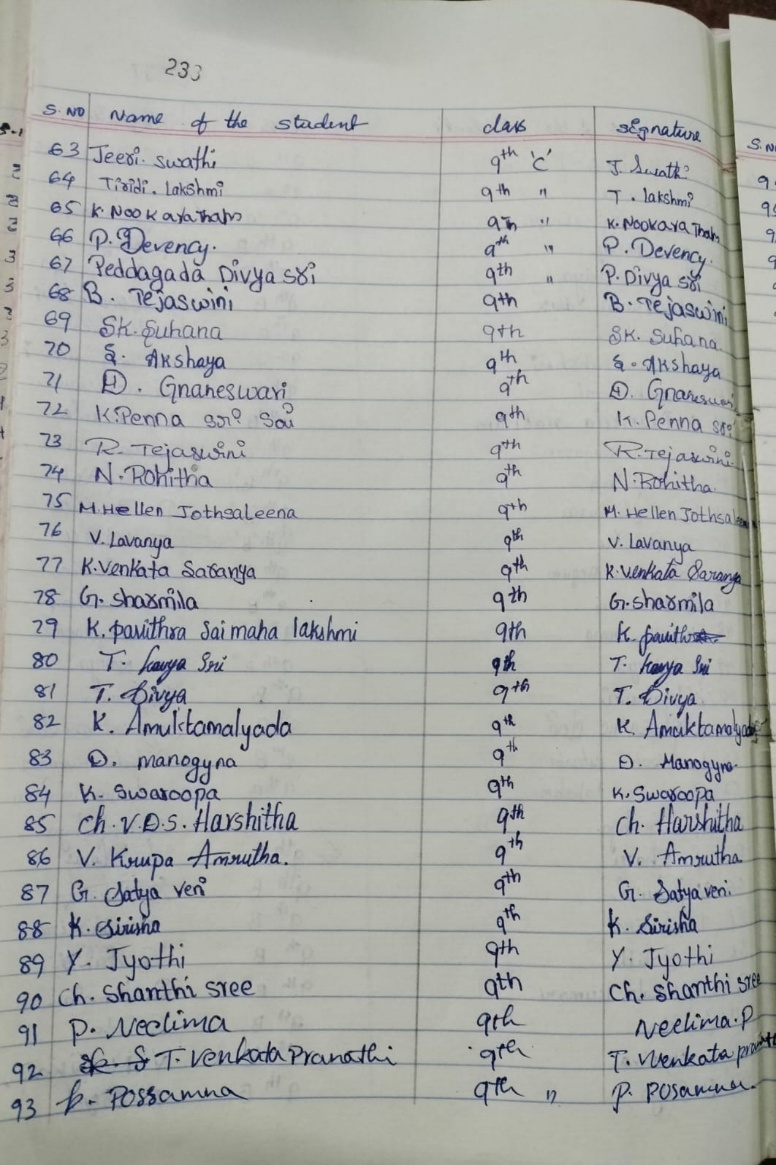 233
S.NO Name of the student class signature
63 Jeeri. swathi 9th 'C' J. Swathi
64 Tiridi. lakshmi 9th " T. lakshmi
65 K. Nookaratham 9th " K. Nookaratham
66 P. Devency. 9th " P. Devency.
67 Peddagada Divya sri 9th " P. Divya sri
68 B. Tejaswini 9th B. Tejaswini
69 SK. Suhana 9th SK. Suhana
70 S. Akshaya 9th S. Akshaya
71 D. Gnaneswari 9th D. Gnaneswari
72 K. Penna sri Sai 9th K. Penna sri
73 R. Tejaswini 9th R. Tejaswini
74 N. Rohitha 9th N. Rohitha
75 M. Hellen Jothsaleena 9th M. Hellen Jothsaleena
76 V. Lavanya 9th V. Lavanya
77 K. Venkata Saranya 9th K. Venkata Saranya
78 G. Sharmila 9th G. Sharmila
79 K. pavithra Sai maha lakshmi 9th K. pavithra
80 T. kavya Sri 9th T. kavya Sri
81 T. Divya 9th T. Divya
82 K. Amuktamalyada 9th K. Amuktamalyada
83 D. manogyna 9th D. Manogyna
84 K. Swaroopa 9th K. Swaroopa
85 Ch. V.D.S. Harshitha 9th Ch. Harshitha
86 V. Krupa Amrutha. 9th V. Amrutha
87 G. Satya veni 9th G. Satya veni.
88 K. Sirisha 9th K. Sirisha
89 Y. Jyothi 9th Y. Jyothi
90 Ch. Shanthi sree 9th Ch. Shanthi sree
91 P. Neelima 9th Neelima. P
92 T. Venkata Pranathi 9th T. Venkata
93 P. Possamna 9th " P. Posamna.